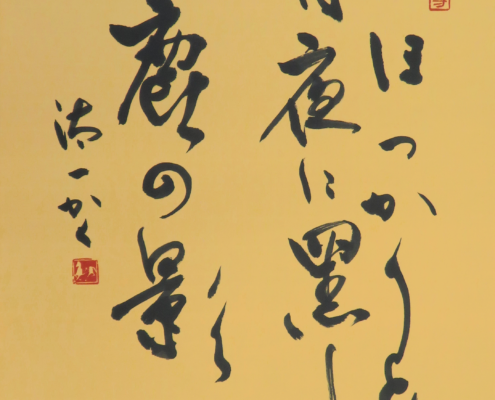 ほっかりと
月夜に黒し
鹿の影
一かく